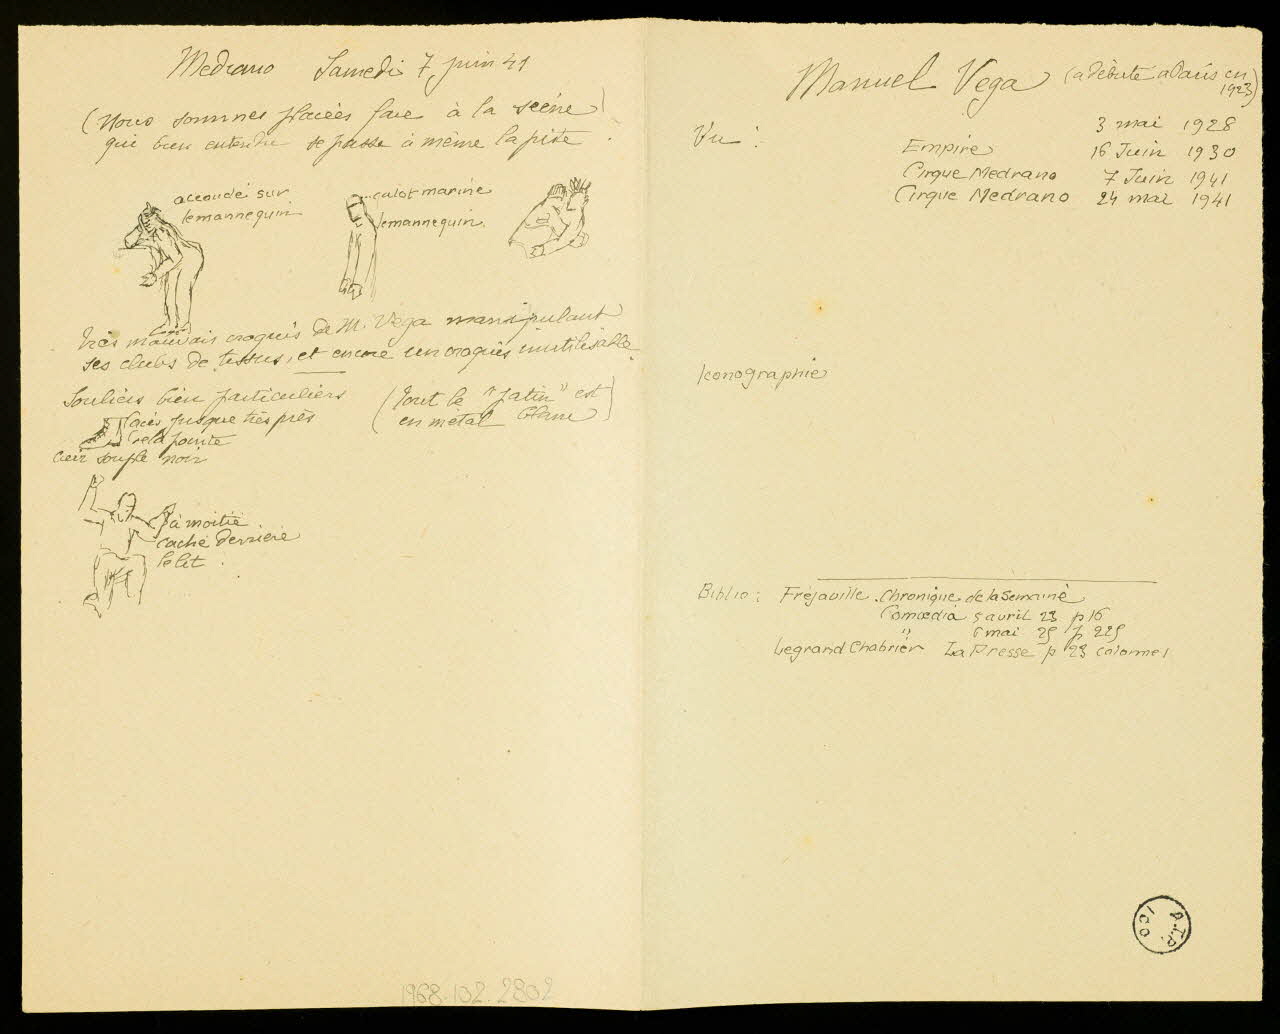 Medrano Samedi 7 juin 41
(Nous sommes placées face à la scène)
qui bien entendu se passe à même la piste.
accoudé sur
le mannequin
calot marine
le mannequin.
Très mauvais croquis de M. Vega manipulant
ses clubs de tissus, et encore un croquis inutilisable
Souliers bien particuliers
(Tout le "patin" est
en métal blanc)
lacés jusque très près
de la pointe
cuir souple noir
à moitié
caché derrière
le lit.
1968.102.2802
Manuel Vega (a débuté a Paris en
1923)
Vu :
3 mai 1928
Empire 16 Juin 1930
Cirque Medrano 7 Juin 1941
Cirque Medrano 24 mai 1941
Iconographie
Biblio : Fréjaville. Chronique de la Semaine
Comœdia 5 avril 23 p 16
" 6 mai 25 p 225
Legrand Chabrier La Presse p 23 colonne 1
A.T.P.
001